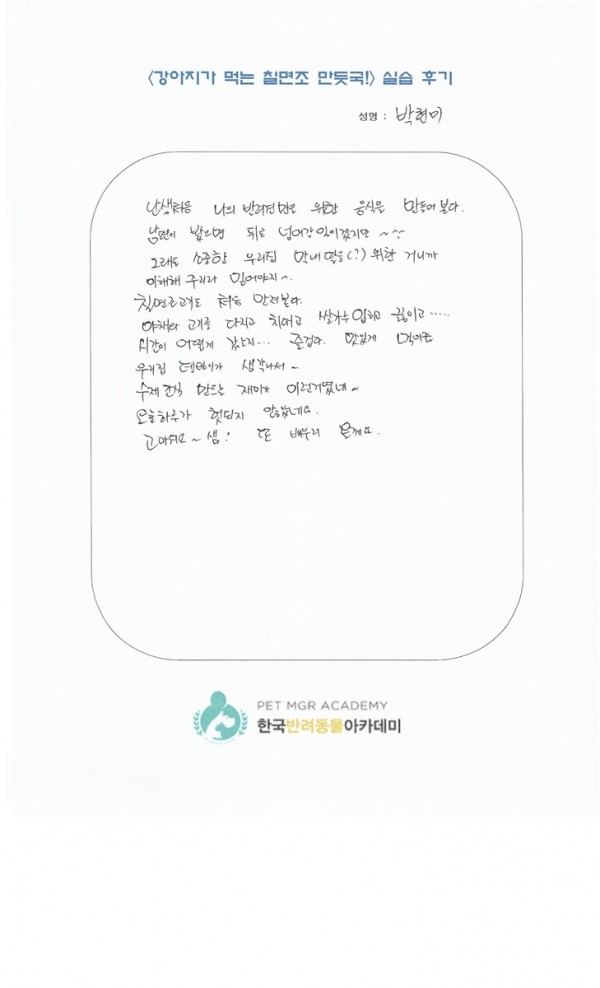 <강아지가 먹는 칠면조 만둣국!> 실습 후기
성명 : 박현미
난생처음 나의 반려견만을 위한 음식을 만들어 본다.
남편이 봤으면 뒤로 넘어갈 일이겠지만 ~^^
그래도 소중한 우리집 막내딸을(?) 위한 거니까
이해해 주리라 믿어야지~.
칠면조고기도 처음 만져본다.
야채와 고기를 다지고 치대고 쌀가루 입히고 끓이고.....
시간이 어떻게 갔는지... 즐겁다. 맛있게 먹어줄
우리집 이가 생각나서~
수제간식 만드는 재미가 이런거였네~
오늘하루가 헛되지 않았네요.
고마워요~ 샘! 또 배우러 올게요.
PET MGR ACADEMY
한국반려동물아카데미